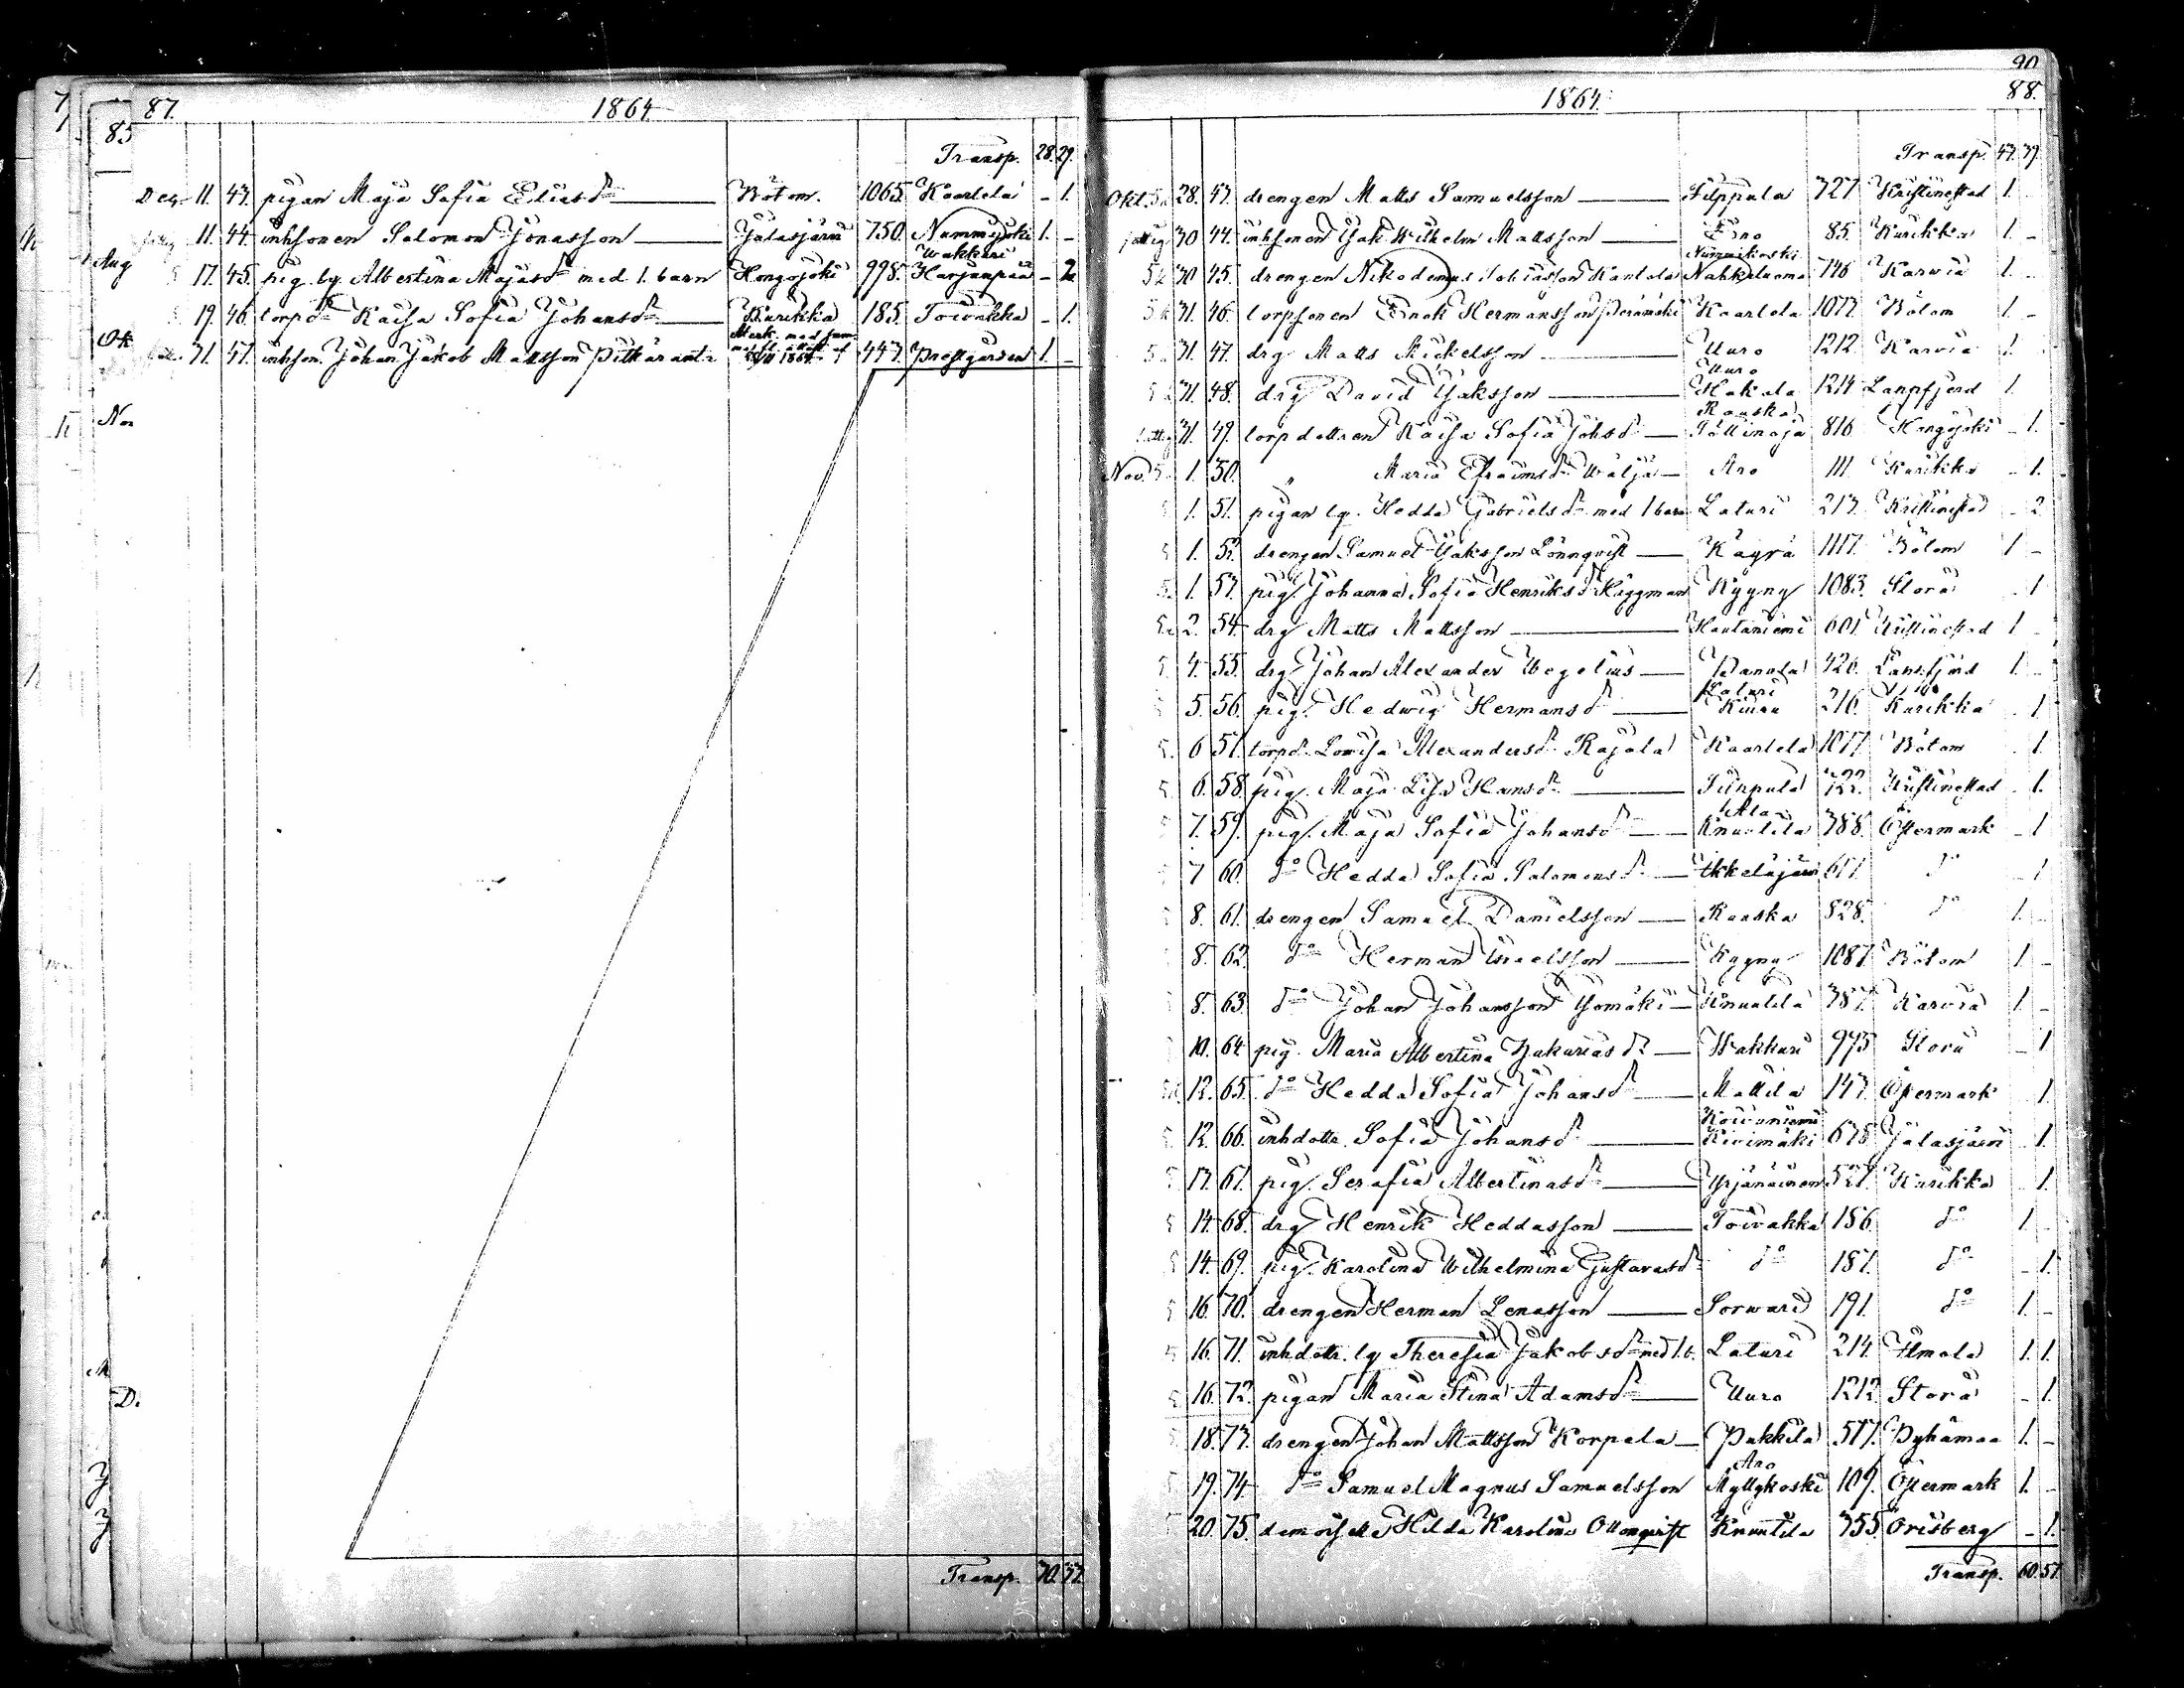 87. 1864
85
Transp. 28. 29.
Dec. 11. 43. pigan Maja Sofia Eliasdr Bötom. 1065. Kaarlela - 1.
11. 44. inhsonen Salomon Jonasson Jalasjärvi 750. Nummijoki 1. -
Wakkuri
Aug 17. 45. pig. lg. Albertina Majasdr med 1. barn Hongojoki 998. Harjunpää - 2
19. 46. torpdr Kaisa Sofia Johansdr Kurikka 185. Toivakka - 1.
31. 47. inhson. Johan Jakob Mattsson Pitkäranta 443. Prestgården 1. -
Transp. 30. 33.
90
1864. 88.
Transp. 47. 39.
Okt. 28. 43. drengen Matts Samuelsson Filppula 727. Kristinestad 1.
30 44. inhsonen Isak Wilhelm Mattsson Eno 85. Kurikka 1. -
Nummikoski
30 45. drengen Nikodemus Tobiasson Kantola Nahkaluoma 746 Karvia 1.
31. 46. torpsonen Enok Hermansson Perämäki Kaarlela 1073. Bötom 1. -
31. 47. drg Matts Mickelsson Uuro 1212. Karvia 1.
Uuro
31. 48. drg David Isaksson Hakala 1214 Lappfjerd 1.
Rauska
31. 49. torpdottren Kaisa Sofia Johsdr Pöllinoja 816 Hongojoki - 1.
Nov. 1. 50. " Maria Efraimsdr Wäljä Aro 111. Kurikka - 1.
1. 51. pigan lg. Hedda Gabrielsdr med 1 barn Laturi 213. Kristinestad - 2
1. 52. drengen Samuel Isaksson Lönnqvist Käyrä 1117. Bötom 1 -
1. 53. pig. Johanna Sofia Henriksdr Häggman Kyyny 1083. Storå - 1
2. 54. drg Matts Mattsson Hautaniemi 601. Kristinestad 1 -
4. 55. drg Johan Alexander Wegelius Pannula 426. Lappfjerd 1. -
Laturi
5. 56. pig. Hedwig Hermansdr Kiuru 216. Kurikka - 1
6 57. torpdr Lowisa Alexandersdr Rajala Kaarlela 1077. Bötom - 1.
6. 58. pig. Maja Lisa Hansdr Filppula 722. Kristinestad - 1.
Ala-
7. 59. pig. Maja Sofia Johansdr Knuutila 388. Östermark - 1
7 60. do Hedda Sofia Salomonsdr Ikkeläjärvi 617. do - 1
8. 61. drengen Samuel Danielsson Rauska 828. do 1. -
8. 62. do Herman Israelsson Kyyny 1087. Bötom 1. -
8. 63. do Johan Johansson Isomäki Knuutila 387. Karvia 1. -
10. 64 pig. Maria Albertina Zakariasdr Wakkuri 975 Storå - 1
12. 65. do Hedda Sofia Johansdr Mattila 143. Östermark - 1.
Koivuniemi
12. 66. inhdottr. Sofia Johansdr Kivimäki 678 Jalasjärvi - 1.
13. 67. pig. Serafia Albertinasdr Yrjänäinen 527. Kurikka - 1.
14. 68. drg Henrik Heddasson Toivakka 186. do 1. -
14. 69. pig. Karolina Wilhelmina Gustavasdr do 187. do - 1.
16. 70. drengen Herman Lenasson Sorwari 191. do 1. -
16. 71. inhdottr. lg Theresia Jakobsdr med 1. b. Laturi 214. Ilmola 1. 1.
16. 72. pigan Maria Stina Adamsdr Uuro 1212. Storå - 1.
18. 73. drengen Johan Mattsson Korpela Pukkila 517. Pyhämaa 1. -
Aro
19. 74 do Samuel Magnus Samuelsson Myllykoski 109. Östermark 1. -
20. 75. demoiselle Hilda Karolina Ottonqvist Knuutila 355 Orisberg - 1.
Transp. 60. 51.